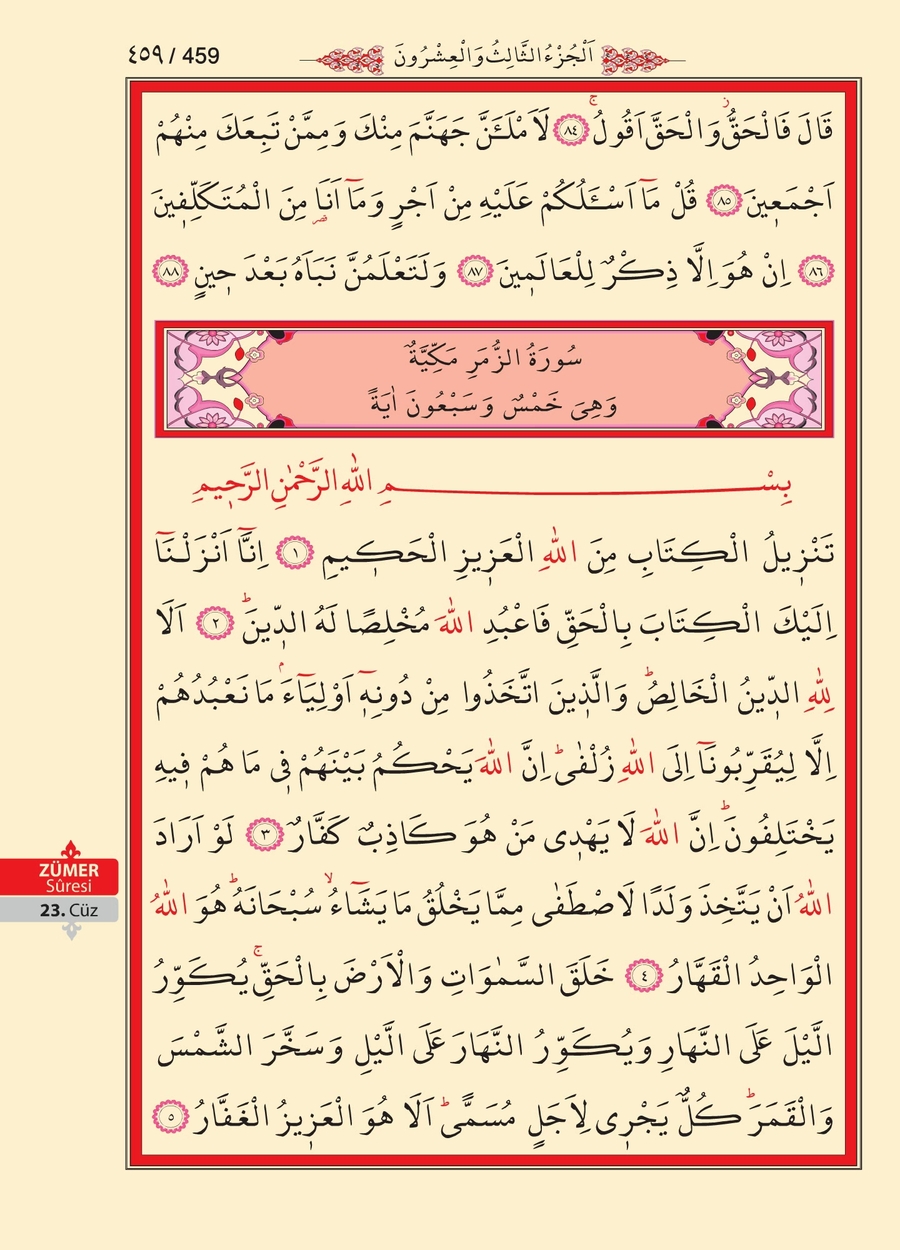 اَلْجُزْءُ الثَّالِثُ وَالْعِشْرُونَ
٤٥٩ / 459
قَالَ فَالْحَقُّۘ وَالْحَقَّ اَقُولُۚ ﴿٨٤﴾ لَاَمْلَـَٔنَّ جَهَنَّمَ مِنْكَ وَمِمَّنْ تَبِعَكَ مِنْهُمْ
اَجْمَعٖينَ ﴿٨٥﴾ قُلْ مَٓا اَسْـَٔلُكُمْ عَلَيْهِ مِنْ اَجْرٍ وَمَٓا اَنَا۬ مِنَ الْمُتَكَلِّفٖينَ
﴿٨٦﴾ اِنْ هُوَ اِلَّا ذِكْرٌ لِلْعَالَمٖينَ ﴿٨٧﴾ وَلَتَعْلَمُنَّ نَبَاَهُ بَعْدَ حٖينٍ ﴿٨٨﴾
سُورَةُ الزُّمَرِ مَكِّيَّةٌ
وَهِىَ خَمْسٌ وَسَبْعُونَ اٰيَةً
بِسْمِ اللّٰهِ الرَّحْمٰنِ الرَّحٖيمِ
تَنْزٖيلُ الْكِتَابِ مِنَ اللّٰهِ الْعَزٖيزِ الْحَكٖيمِ ﴿١﴾ اِنَّٓا اَنْزَلْنَٓا
اِلَيْكَ الْكِتَابَ بِالْحَقِّ فَاعْبُدِ اللّٰهَ مُخْلِصًا لَهُ الدّٖينَۜ ﴿٢﴾ اَلَا
لِلّٰهِ الدّٖينُ الْخَالِصُۜ وَالَّذٖينَ اتَّخَذُوا مِنْ دُونِهٖٓ اَوْلِيَٓاءَۢ مَا نَعْبُدُهُمْ
اِلَّا لِيُقَرِّبُونَٓا اِلَى اللّٰهِ زُلْفٰىۜ اِنَّ اللّٰهَ يَحْكُمُ بَيْنَهُمْ فٖى مَا هُمْ فٖيهِ
يَخْتَلِفُونَۜ اِنَّ اللّٰهَ لَا يَهْدٖى مَنْ هُوَ كَاذِبٌ كَفَّارٌ ﴿٣﴾ لَوْ اَرَادَ
اللّٰهُ اَنْ يَتَّخِذَ وَلَدًا لَاصْطَفٰى مِمَّا يَخْلُقُ مَا يَشَٓاءُۙ سُبْحَانَهُۜ هُوَ اللّٰهُ
الْوَاحِدُ الْقَهَّارُ ﴿٤﴾ خَلَقَ السَّمٰوَاتِ وَالْاَرْضَ بِالْحَقِّۚ يُكَوِّرُ
الَّيْلَ عَلَى النَّهَارِ وَيُكَوِّرُ النَّهَارَ عَلَى الَّيْلِ وَسَخَّرَ الشَّمْسَ
وَالْقَمَرَۜ كُلٌّ يَجْرٖى لِاَجَلٍ مُسَمًّىۜ اَلَا هُوَ الْعَزٖيزُ الْغَفَّارُ ﴿٥﴾
ZÜMER
Sûresi
23. Cüz